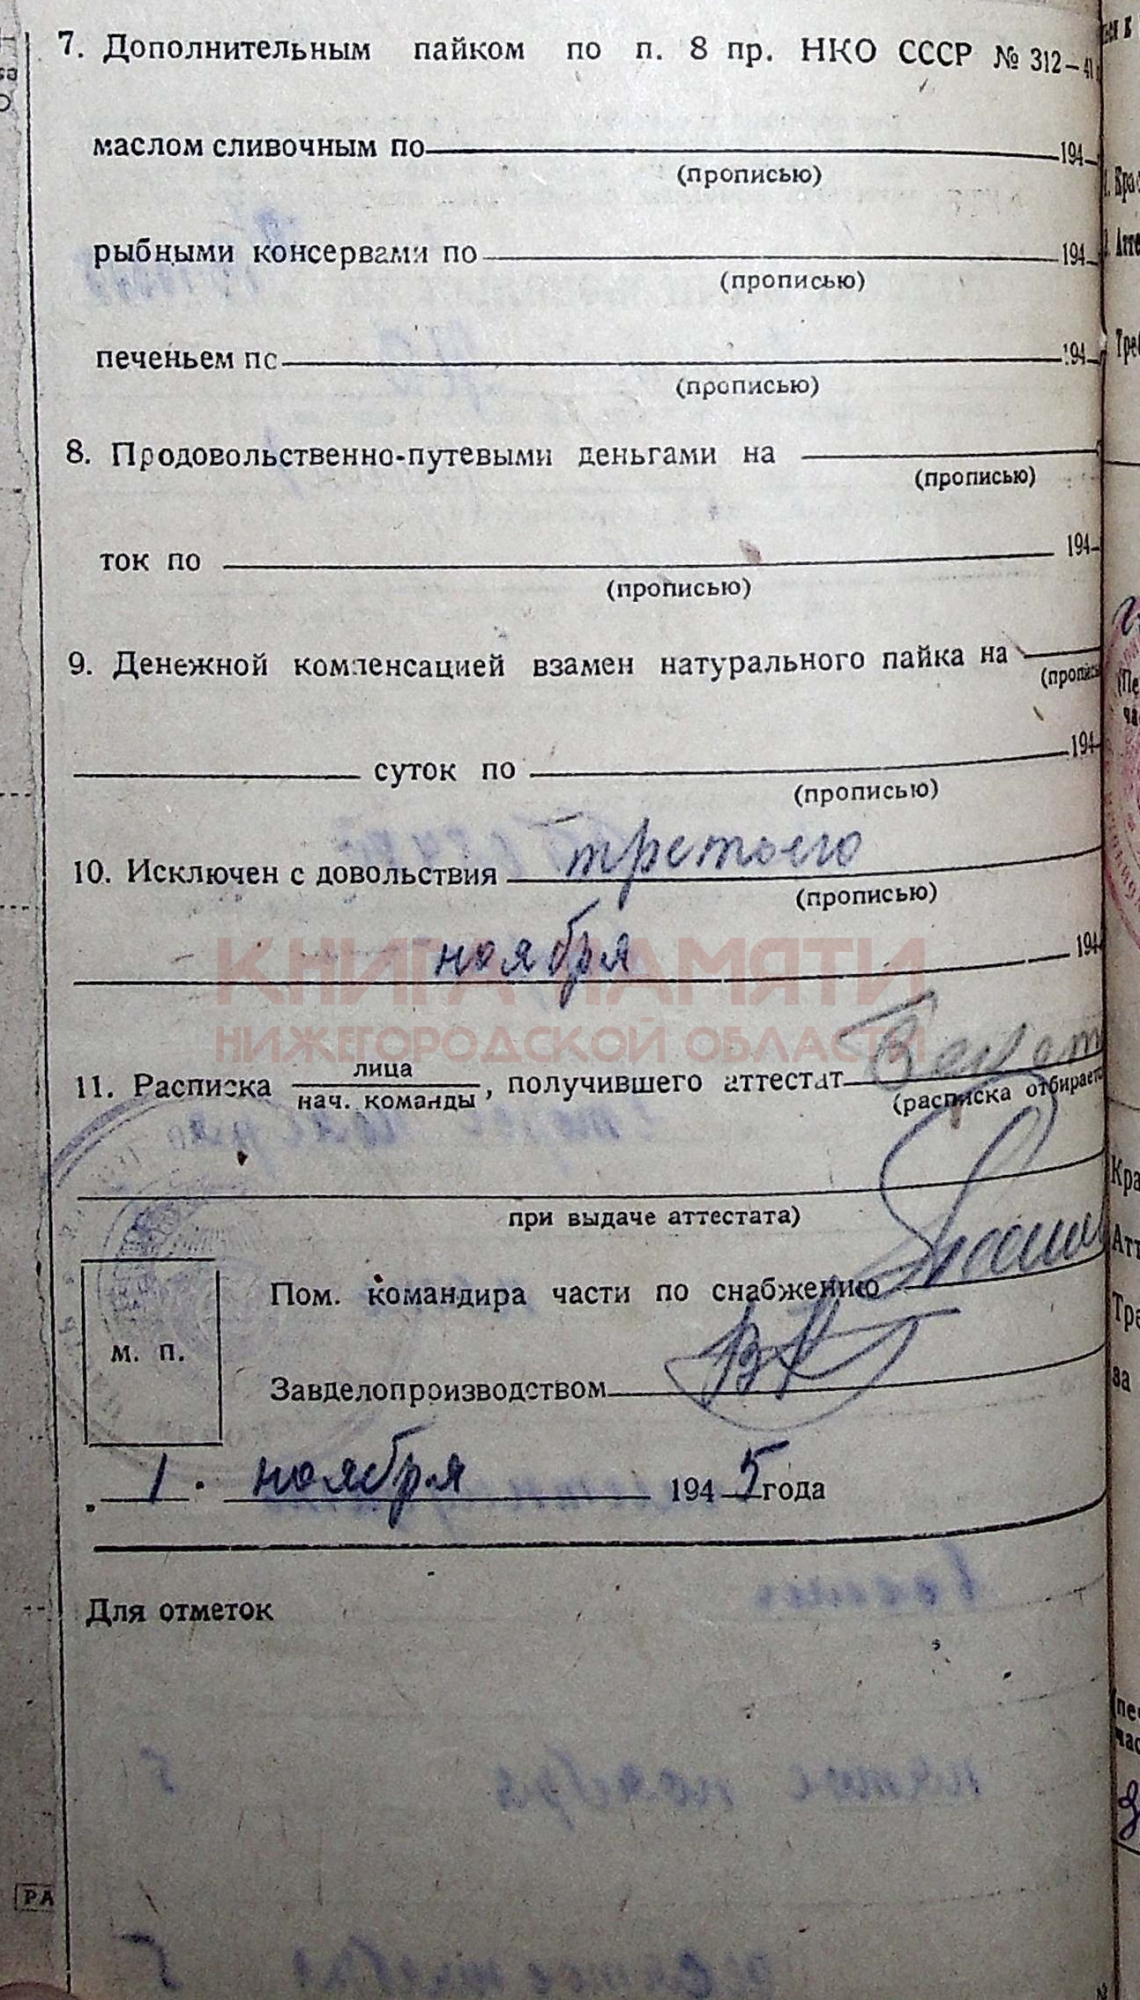 7. Дополнительным пайком по п. 8 пр. НКО СССР № 312-41
маслом сливочным по 194
(прописью)
рыбными консервами по 194
(прописью)
печеньем по 194
(прописью)
8. Продовольственно-путевыми деньгами на
(прописью)
ток по 194
(прописью)
9. Денежной компенсацией взамен натурального пайка на
(прописью
суток по 194
(прописью)
10. Исключен с довольствия третьего
(прописью)
ноября 194
КНИГА ПАМЯТИ
НИЖЕГОРОДСКОЙ ОБЛАСТИ
11. Расписка лица
нач. команды, получившего аттестат
(расписка отбирает
при выдаче аттестата)
Пом. командира части по снабжению
м. п.
Завделопроизводством
1 ноября 1945 года
Для отметок